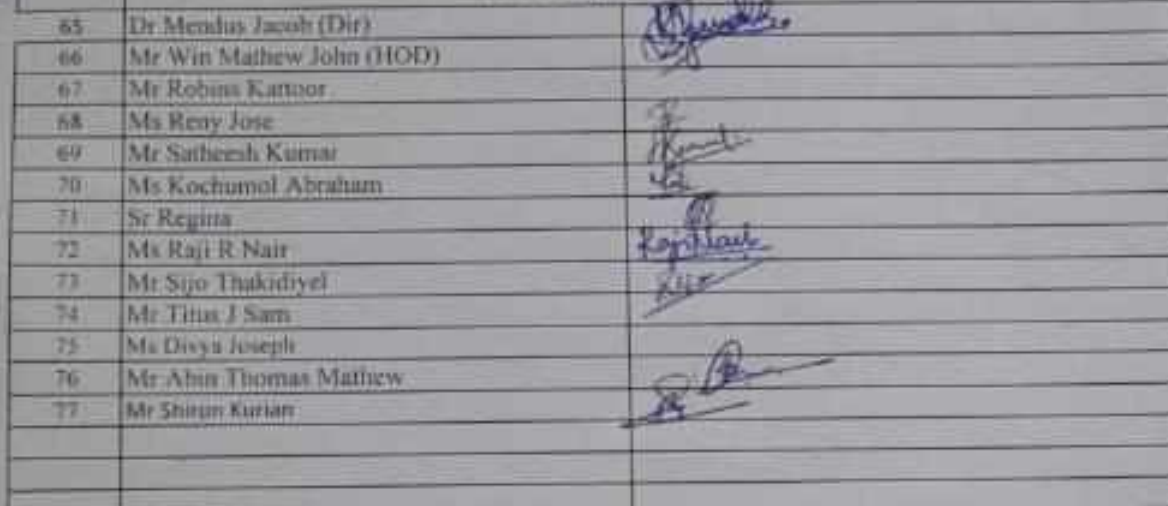 65 Dr Mendus Jacob (Dir)
66 Mr Win Mathew John (HOD)
67 Mr Robins Kartoor
68 Ms Reny Jose
69 Mr Satheesh Kumar
70 Ms Kochumol Abraham
71 Sr Regina
72 Ms Raji R Nair
73 Mr Sijo Thakidiyel Sijo
74 Mr Titus J Sam
75 Ms Divya Joseph
76 Mr Abin Thomas Mathew
77 Mr Kurian